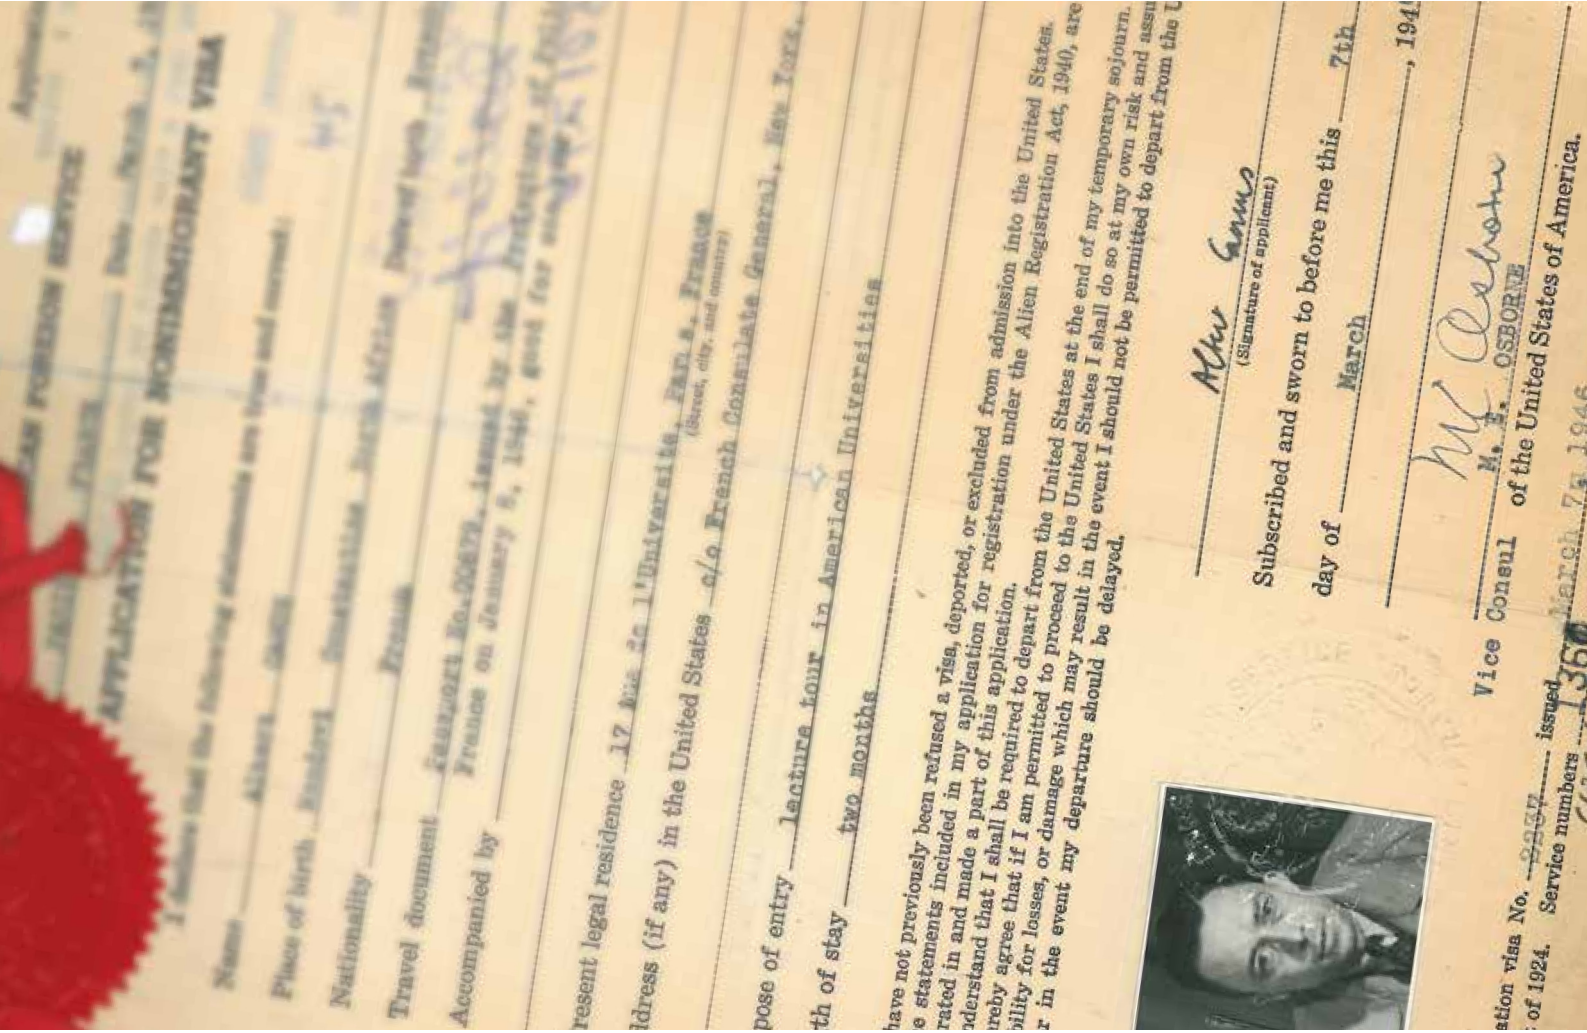 AN FOREIGN SERVICE
APPLICATION FOR NONIMMIGRANT VISA
I declare that the following statements are true and correct:
Name
Place of birth
Nationality French
Travel document Passport No. issued by the
France on January 8, 1946, good for
Accompanied by
resent legal residence 17 Rue de l'Université, Paris, France
(Street, city, and country)
ddress (if any) in the United States c/o French Consulate General, New York,
pose of entry lecture tour in American Universities
th of stay two months
have not previously been refused a visa, deported, or excluded from admission into the United States.
e statements included in my application for registration under the Alien Registration Act, 1940, are
rated in and made a part of this application.
nderstand that I shall be required to depart from the United States at the end of my temporary sojourn.
reby agree that if I am permitted to proceed to the United States I shall do so at my own risk and assu
bility for losses, or damage which may result in the event I should not be permitted to depart from the U
r in the event my departure should be delayed.
(Signature of applicant)
Subscribed and sworn to before me this 7th
day of March , 194
M. E. OSBORNE
Vice Consul of the United States of America.
ation visa No. issued March 7, 1946
of 1924. Service numbers